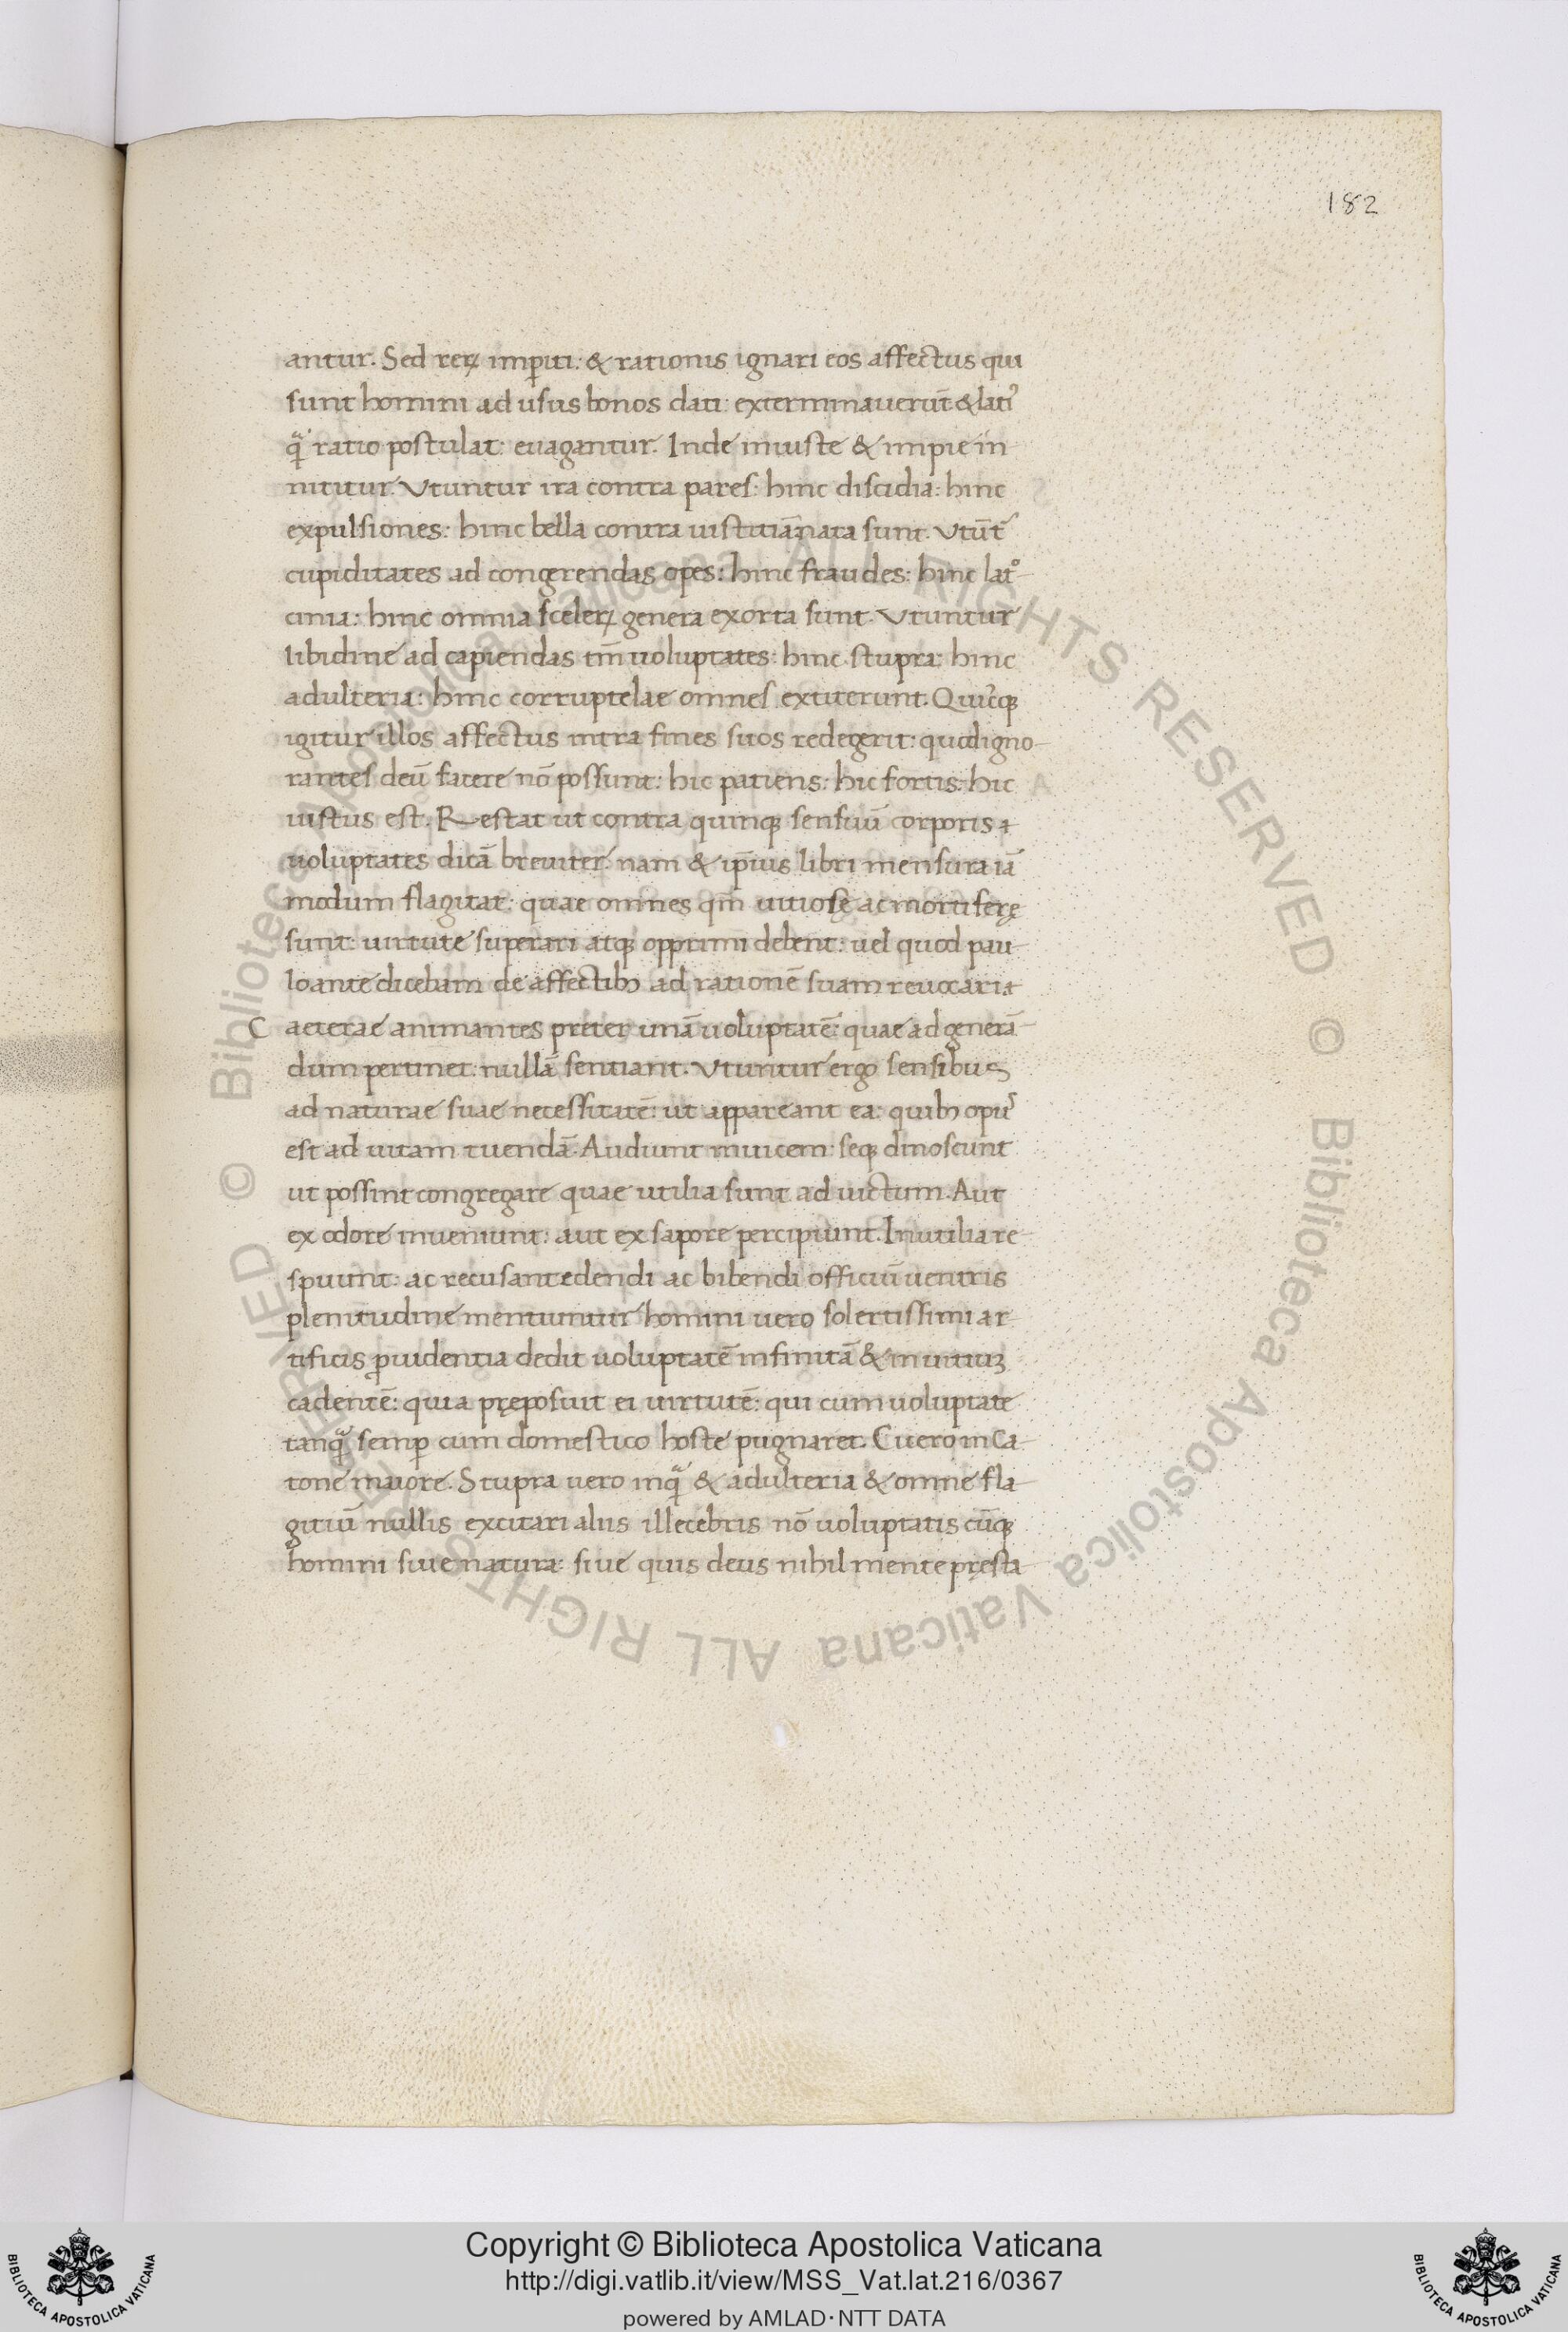 182
antur. Sed rerꝝ impiti: & rationis ignari eos affectus qui
sunt homini ad usus bonos dati: exterminauerūt & lati᾿
qͣ ratio postulat: euagantur. Inde iniuste & impie in
nititur. Vtuntur ira contra pares: hinc discidia: hinc
expulsiones: hinc bella contra iustitiā nata sunt. Vtūt᾿
cupiditates ad congerendas opes: hinc fraudes: hinc latº
cinia: hinc omnia scelerꝝ genera exorta sunt. Vtuntur
libidine ad capiendas tm̄ uoluptates: hinc stupra: hinc
adulteria: hinc corruptelae omnes extiterunt. Quicꝗ
igitur illos affectus intra fines suos redegerit: quod igno
rantes deū facere nō possunt: hic patiens: hic fortis: hic
iustus est. Restat ut contra quinqꝫ sensuū corporis
uoluptates dicā breuiter. nam & ip̄ius libri mensura iā
modum flagitat: quae omnes qm̄ uitiosę ac mortiferę
sunt: uirtute superari atqꝫ opprimi debent: uel quod pau
lo ante dicebam de affectibꝫ ad rationē suam reuocari.
C aeterae animantes preter unā uoluptatē: quae ad generā
dum pertinet: nullā sentiant. Vtuntur ergo sensibus
ad naturae suae necessitatē: ut appareant ea: quibꝫ opus
est ad uitam tuendā. Audiunt inuicem: seqꝫ dinoscunt
ut possint congregare quae utilia sunt ad uictum. Aut
ex odore inueniunt: aut ex sapore percipiunt. Inutilia re
spuunt: ac recusant edendi ac bibendi officiū uentris
plenitudine mentiuntur homini uero solertissimi ar
tificis ꝓuidentia dedit uoluptatē infinitā & in uitiuꝫ
cadentē: quia pręposuit ei uirtutē: qui cum uoluptate
tanqͣ semꝑ cum domestico hoste pugnaret. Cuero in Ca
tone maiore. Stupra uero inqͣ & adulteria & omne fla
gitiū nullis excitari aliis illecebris nō uoluptatis cūqꝫ
homini siue natura: siue quis deus nihil mente pręsta
© Biblioteca Apostolica Vaticana ALL RIGHTS RESERVED
© Biblioteca Apostolica Vaticana ALL RIGHTS RESERVED
Copyright © Biblioteca Apostolica Vaticana
http://digi.vatlib.it/view/MSS_Vat.lat.216/0367
powered by AMLAD·NTT DATA
BIBLIOTECA APOSTOLICA VATICANA
BIBLIOTECA APOSTOLICA VATICANA